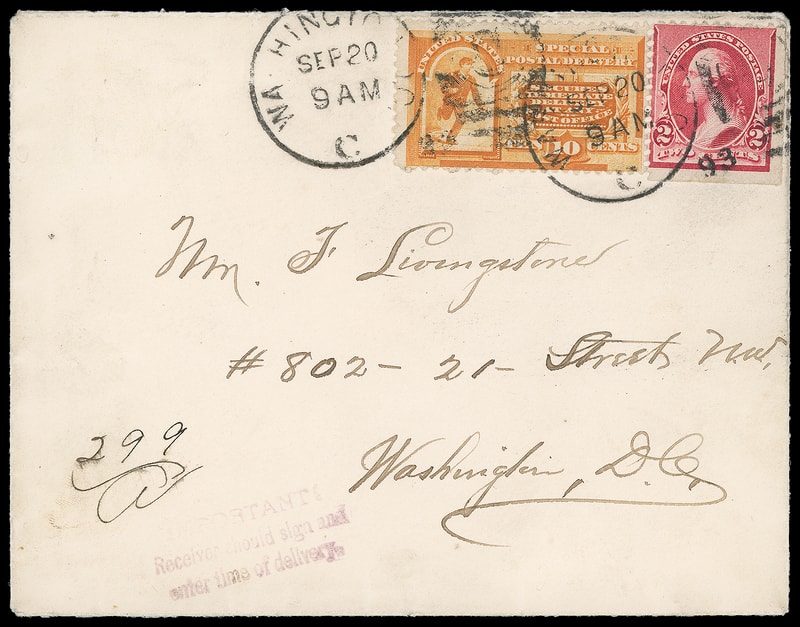 WASHINGTO
SEP 20
9 AM
C.
UNITED STATES
SPECIAL
POSTAL DELIVERY
SECURES
IMMEDIATE
DELIVERY
AT A
POST OFFICE
TEN 10 CENTS
SEP 20
9 AM
C
UNITED STATES POSTAGE
2 2
93
Wm. F Livingstone
# 802 - 21 - Street N.W.
Washington, D.C.
299
IMPORTANT!
Receiver should sign and
enter time of delivery.